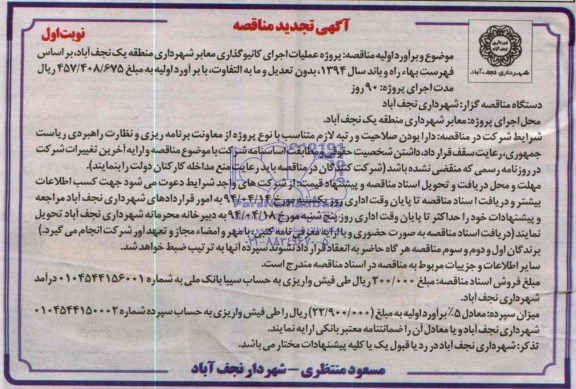 آگهی تجدید مناقصه
نوبت اول
شهرداری نجف آباد
موضوع و برآورد اولیه مناقصه: پروژه عملیات اجرای کانیوگذاری معابر شهرداری منطقه یک نجف آباد، بر اساس
فهرست بهاء راه و باند سال ۱۳۹۴، بدون تعدیل و ما به التفاوت، با برآورد اولیه به مبلغ ۴۵۷/۴۰۸/۶۷۵ ریال
مدت اجرای پروژه: ۹۰ روز
دستگاه مناقصه گزار: شهرداری نجف آباد
محل اجرای پروژه: معابر شهرداری منطقه یک نجف آباد.
شرایط شرکت در مناقصه: دارا بودن صلاحیت و رتبه لازم متناسب با نوع پروژه از معاونت برنامه ریزی و نظارت راهبردی ریاست
جمهوری، رعایت سقف قرارداد، داشتن شخصیت حقوقی و مطابقت اساسنامه شرکت با موضوع مناقصه و ارایه آخرین تغییرات شرکت
در روزنامه رسمی که منقضی نشده باشد (شرکت کنندگان در مناقصه باید رعایت منع مداخله کارکنان دولت را بنمایند).
مهلت و محل دریافت و تحویل اسناد مناقصه و پیشنهاد قیمت: از شرکت های واجد شرایط دعوت می شود جهت کسب اطلاعات
بیشتر و دریافت اسناد مناقصه تا پایان وقت اداری روز یکشنبه مورخ ۹۴/۰۴/۱۴ به امور قراردادهای شهرداری نجف آباد مراجعه
و پیشنهادات خود را حداکثر تا پایان وقت اداری روز پنج شنبه مورخ ۹۴/۰۴/۱۸ به دبیرخانه محرمانه شهرداری نجف آباد تحویل
نمایند (دریافت اسناد مناقصه به صورت حضوری و با ارایه معرفی نامه کتبی با مهر و امضاء مجاز و تعهدآور شرکت انجام می گیرد.)
برندگان اول و دوم و سوم مناقصه هرگاه حاضر به انعقاد قرارداد نشوند سپرده آنها به ترتیب ضبط خواهد شد.
سایر اطلاعات و جزییات مربوط به مناقصه در اسناد مناقصه مندرج است.
مبلغ فروش اسناد مناقصه: مبلغ ۲۰۰/۰۰۰ ریال طی فیش واریزی به حساب سیبا بانک ملی به شماره ۰۱۰۴۵۴۴۱۵۶۰۰۱ درآمد
شهرداری نجف آباد.
میزان سپرده: معادل ۵٪ برآورد اولیه به مبلغ (۲۲/۹۰۰/۰۰۰) ریال را طی فیش واریزی به حساب سپرده شماره ۰۱۰۴۵۴۴۱۵۰۰۰۲
شهرداری نجف آباد و یا معادل آن را ضمانتنامه معتبر بانکی ارایه نمایند.
تذکر: شهرداری نجف آباد در رد یا قبول یک یا کلیه پیشنهادات مختار می باشد.
مسعود منتظری - شهردار نجف آباد